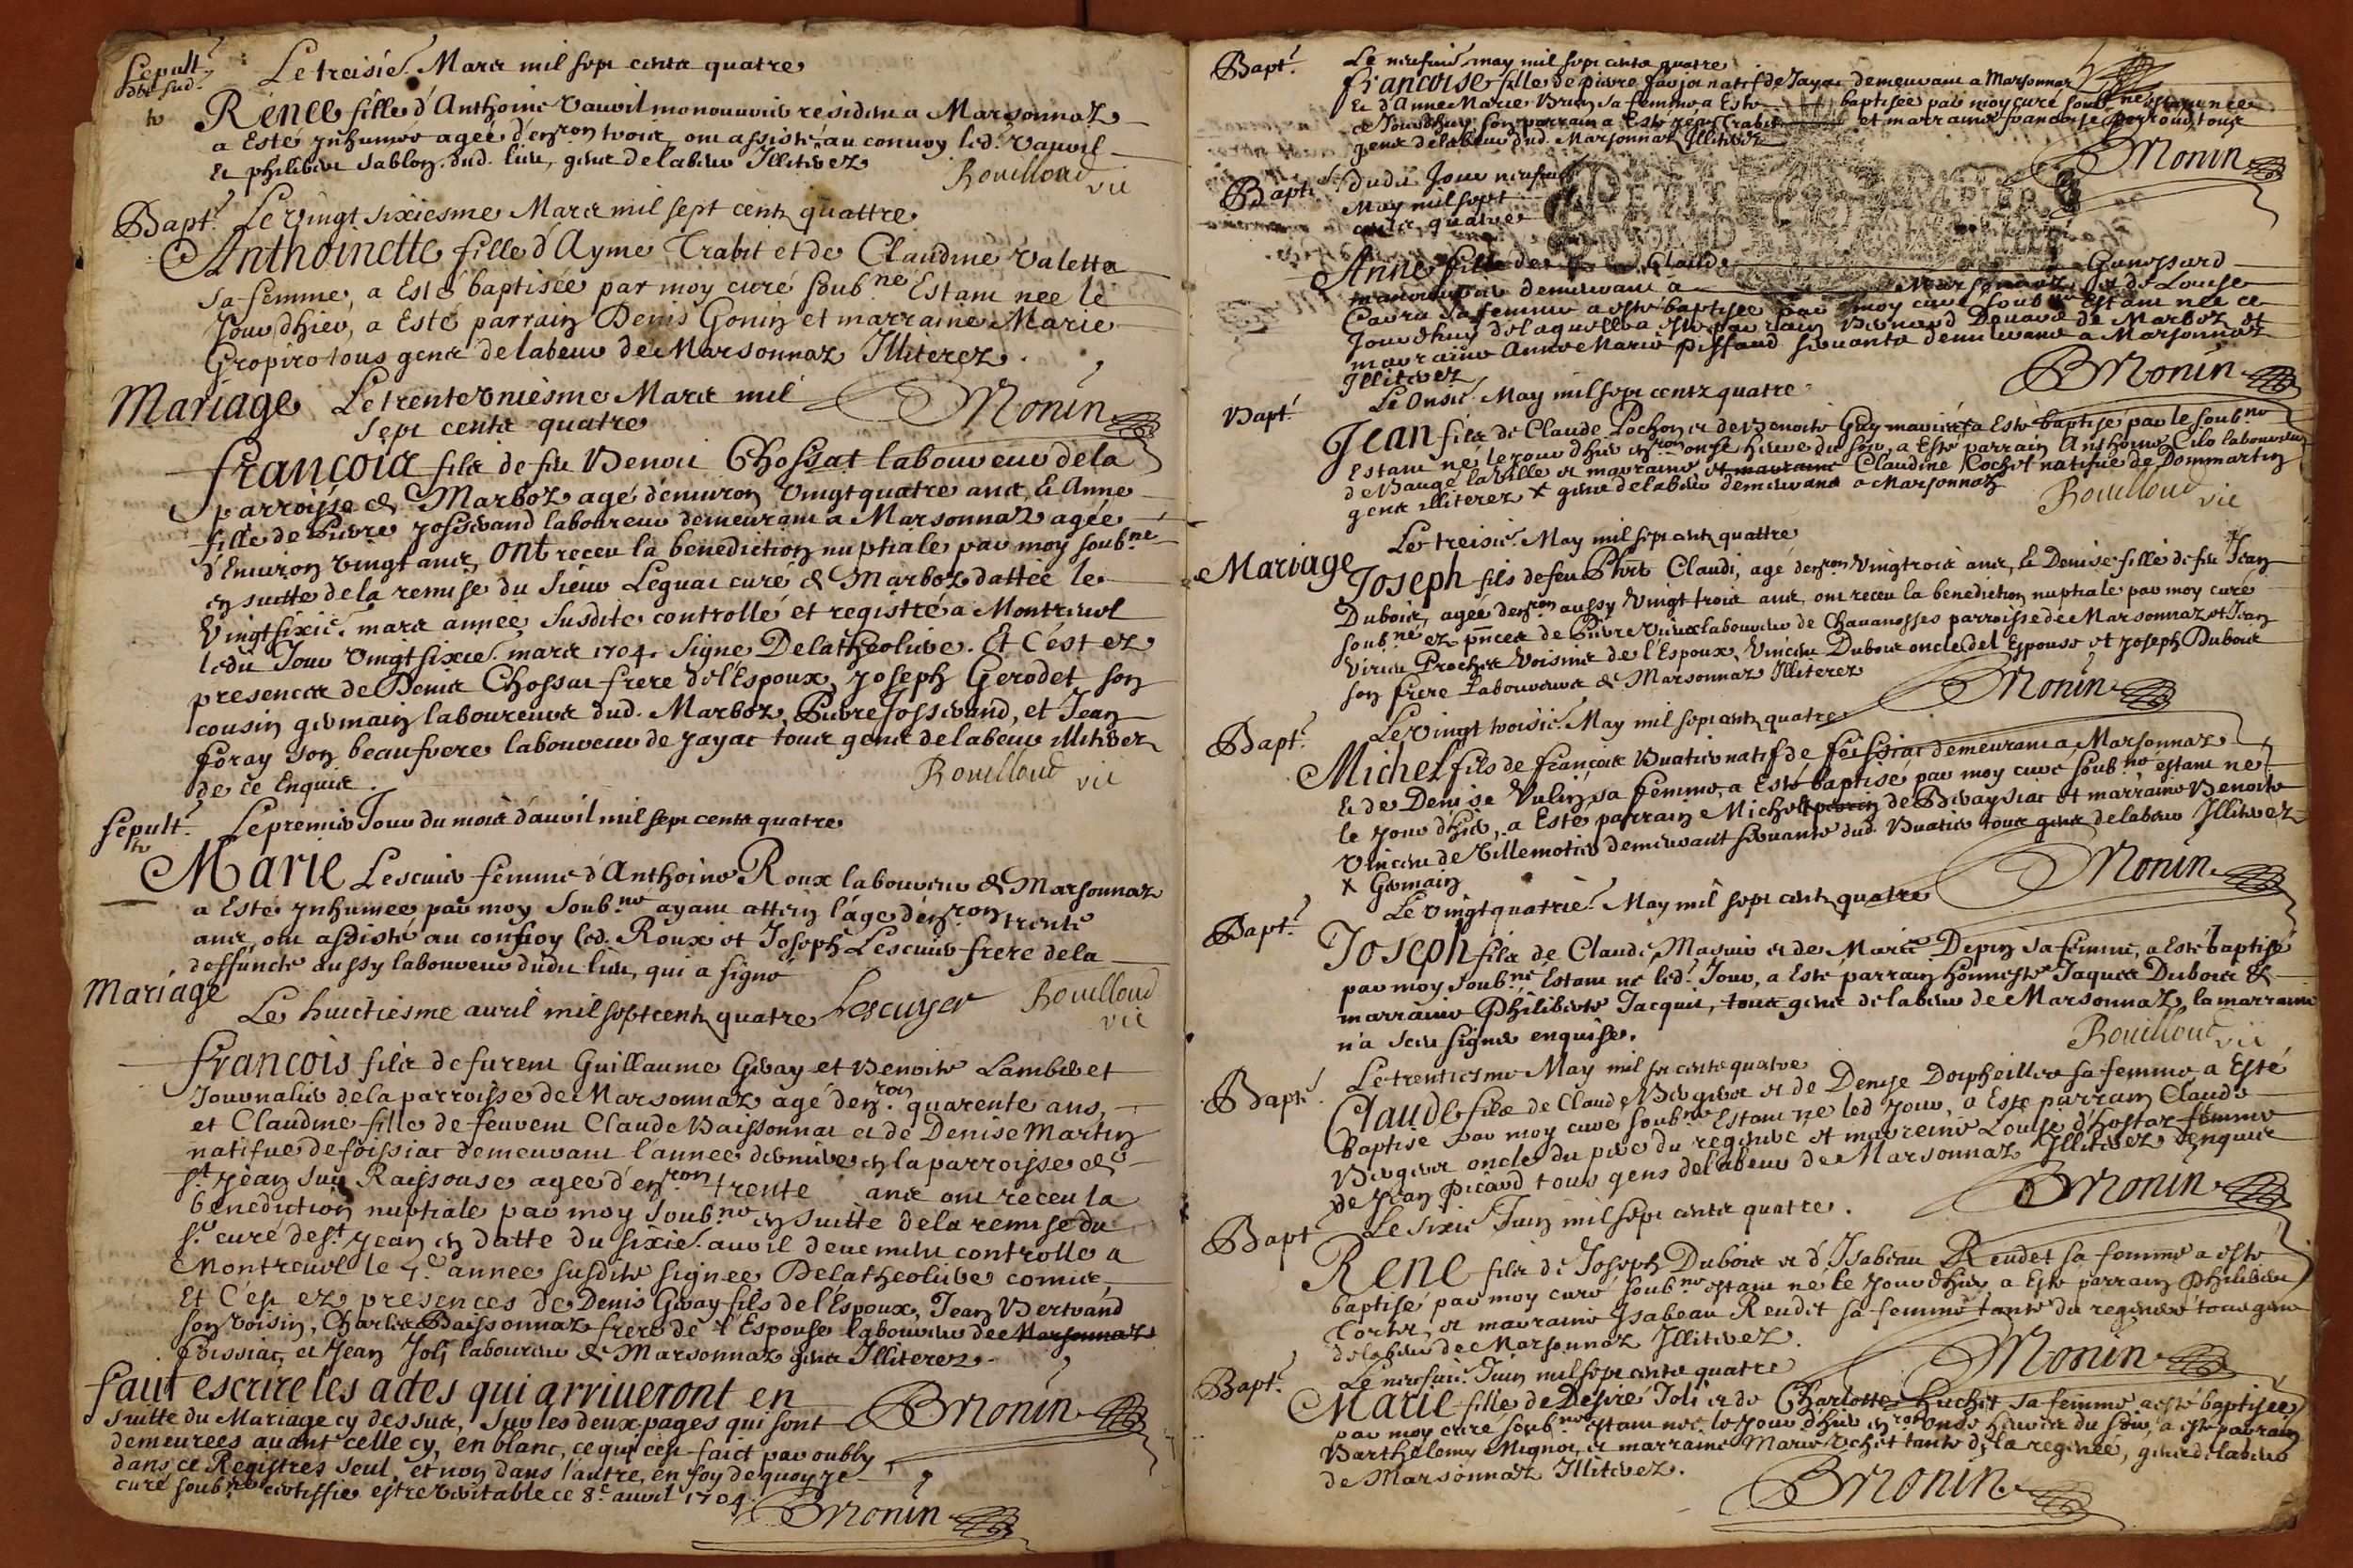 Sepult.
Le treisie. Mars mil sept cents quatre
Renee fille d'Anthoine Vauvil manouvrie residan a Marsonnaz
a Esté Inhumee agee d'environ trois, ont assisté au convoy led. Vauvil
Et philibert Sablon dud. lieu, gens delabeur Illiterez
Bouilloud vic
Bapt. Le Vingt sixiesme Mars mil sept cents quattre
Anthoinette fille d'Ayme Trabit et de Claudine Valette
Sa femme, a Esté baptisée par moy curé soub.né Estant nee le
Jour dhier, a Esté parrain Denis Gonin et marraine Marie
Gropiro tous gens delabeur de Marsonnaz Illiterez.
Mariage Le trente Uniesme Mars mil
sept cents quatre
BMonin
François fils de feu Benoit Chossat laboureur dela
parroisse de Marboz agé d'environ Vingt quatre ans, Et Anne
fille de Pierre Josserand laboureur demeurant a Marsonnaz agée
d'Environ Vingt ans, Ont receu la benediction nuptiale par moy soub.né
en suitte dela remise du Sieur Leguat curé de Marboz dattée le
Vingt sixie. mars année susdite controllé et registré a Montreuel
ledit Jour Vingt sixie. mars 1704. Signe Delatheoliere. Et C'est ez
presences de Denis Chossat frere de l'Espoux, Joseph Gerodet son
cousin germain laboureurs dud. Marboz, Pierre Josserand, et Jean
foray son beaufrere laboureur de Jayac tous gens delabeur illiterez
de ce Enquis.
Bouilloud vic
Sepult. Le premier Jour du mois d'avril mil sept cents quatre
Marie Lescuier femme d'Anthoine Roux laboureur de Marsonnaz
a Esté Inhumee par moy soub.né ayant attein l'age d'environ trente
ans, ont assisté au convoy led. Roux et Joseph Lescuier frere dela
deffuncte aussy laboureur dudit lieu, qui a signé
Mariage
Le huictiesme avril mil sept cents quatre Lescuyer Bouilloud
vic
François fils de furent Guillaume Givay et Benoite Lambert
Journalier dela parroisse de Marsonnaz agé d'environ quarente ans,
et Claudine fille de feuvent Claude Baissonnat et de Denise Martin
natifve de foissiat demeurant l'annee derniere en la parroisse de
St. Jean sur Raissouse agee d'environ trente ans ont receu la
benediction nuptiale par moy soub.né en suitte dela remise du
Sr. curé de St. Jean en datte du sixie. avril
Montreuel le 7.e annee susdite signee Delatheoliere comis
Et C'est ez presences de Denis Givay fils de l'Espoux, Jean Bertrand
son voisin, Charles Baissonnaz frere de l'Espouse laboureur de Marsonnaz
foissiac, et Jean Joly laboureur de Marsonnaz gens Illiterez.
faut escrire les actes qui arriveront en
suitte du Mariage cy dessus, sur les deux pages qui sont
BMonin
demeurees avant celle cy, en blanc, ce qui est faict par oubly
dans ce Registres seul, et non dans l'autre, en foy dequoy je
curé soub.né certiffie estre veritable ce 8.e avril 1704.
BMonin
Bapt. Le neufvie. may mil sept cents quatre
francoise fille de pierre natif de Jayac demeurant a Marsonnaz
Et d'Anne Marie Brun sa femme a Esté baptisée par moy curé soub.né
ce Jourdhuy son parrain a Esté Jean Trabit et marraine francoise perroud tous
gens delabeur dud. Marsonnaz Illiterez
BMonin
Bapt. dudit Jour neufvie.
May mil sept
cents quatre
Anne fille de Claude Gonossard
manouvrier demeurant a Marsonnaz et de Louise
sa femme a esté baptisee par moy curé soub.né Estant nee ce
Jourdhuy de laquelle a esté parrain Bernard de Marboz et
marraine Anne Marie servante demeurant a Marsonnaz
Illiterez
BMonin
Bapt. Le Onsie. May mil sept cents quatre
Jean fils de Claude Pochon et de Benoite Guy mariés a Esté baptisé par le soub.né
Estant né le jour dhier environ onse heures du soir, a Esté parrain Anthoine laboureur
de Baugé la Ville et marraine et marraine Claudine Rochet natifve de Dommartin
gens illiterez x gens delabeur demeurans a Marsonnaz
Bouilloud vic
Le treisie. May mil sept cents quattre
Mariage
Joseph fils de feu Claudi, agé d'environ Vingt trois ans, Et Denise fille de feu Jean
Dubois, agée d'environ aussy Vingt trois ans, ont receu la benediction nuptiale par moy curé
soub.né ez p̃nces de Pierre laboureur de Chavanosses parroisse de Marsonnaz et Jean
Proches Voisins de l'Espoux, Vincent Dubois oncle de l'Espouse et Joseph Dubois
son frere Laboureurs de Marsonnaz Illiterez
BMonin
Bapt. Le Vingt troisie. May mil sept cents quatre
Michel fils de François Buatier natif de foissiat demeurant a Marsonnaz
Et de Denise Vulin sa femme, a Esté baptisé par moy curé soub.né estant né
le jour dhier, a Esté parrain Michel de et marraine Benoite
Vincent de Villemotier demeurant servante dud. Buatier tous gens delabeur Illiterez
x Germain
BMonin
Le Vingt quatrie. May mil sept cents quatre
Bapt.
Joseph fils de Claude Masuir et de Marie Depin sa femme, a Esté baptisé
par moy soub.né Estant né led. Jour, a Esté parrain honneste Jaques Dubois Et
marraine Philiberte Jacquet, tous gens delabeur de Marsonnaz, la marraine
n'a sceu signer enquise.
Bouilloud vic
Le trentiesme May mil sept cents quatre
Bapt.
Claude fils de Claude Bergier et de Denise Dorpheillier sa femme a Esté
Baptisé par moy curé soub.né Estant né led Jour, a Esté parrain Claude
Bergier oncle du pere du regeneré et marreine Louise d'hostaz femme
de Jean Picard tous gens delabeur de Marsonnaz Illiterez d'enquis
BMonin
Bapt Le sixie Juin mil sept cents quatre.
René fils de Joseph Dubois et d'Isabeau Rendet sa femme a esté
baptisé par moy curé soub.né estant né le jour dhier, a Esté parrain Philibert
et marraine Isabeau Rendet sa femme tante du regeneré tous gens
delabeur de Marsonnaz Illiterez.
BMonin
Le neufvie. Juin mil sept cents quatre
Bapt.
Marie fille de Desiré Joli et de Charlotte huchet sa femme a esté baptisée
par moy curé soub.né estant nee le jour dhier environ onse heures du soir, a esté parrain
Barthelemy Mignot, et marraine Marie Uchet tante de la regeneé, gens delabeur
de Marsonnaz Illiterez.
BMonin